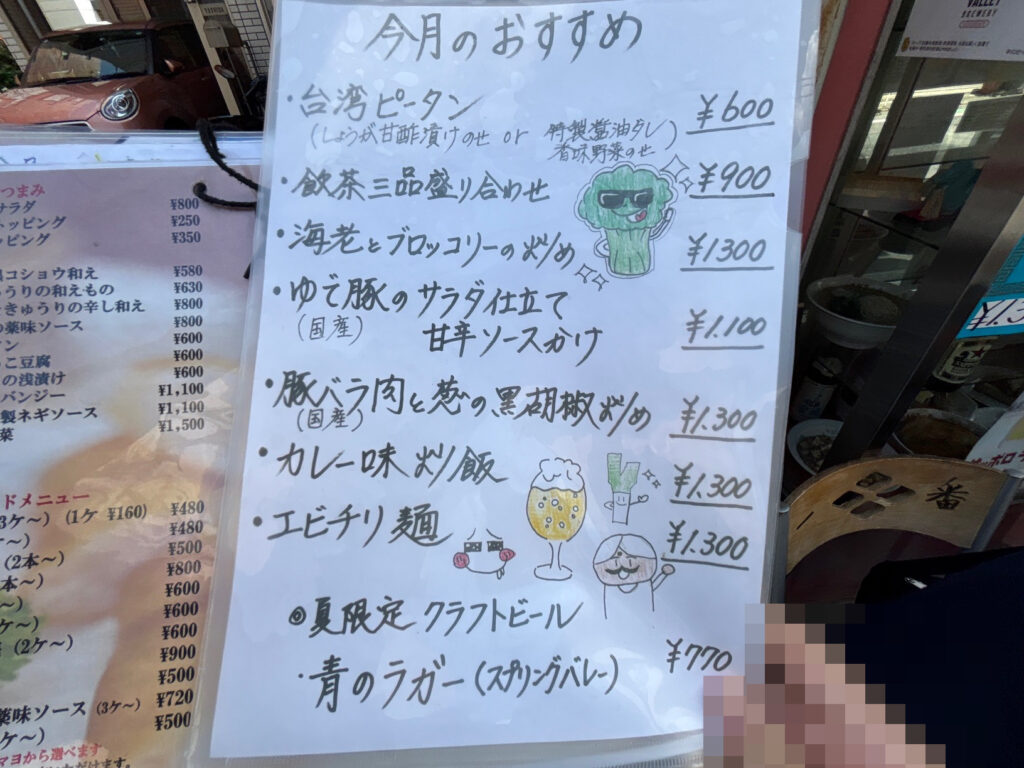 今月のおすすめ
・台湾ピータン ¥600
(しょうが甘酢漬けのせ or 特製醤油タレ)
香味野菜のせ
・飲茶三品盛り合わせ ¥900
・海老とブロッコリーの炒め ¥1300
・ゆで豚のサラダ仕立て
(国産) 甘辛ソースかけ ¥1.100
・豚バラ肉と葱の黒胡椒炒め ¥1.300
(国産)
・カレー味炒飯 ¥1.300
・エビチリ麺 ¥1.300
◎夏限定 クラフトビール
・青のラガー(スプリングバレー) ¥770
つまみ
サラダ ¥800
トッピング ¥250
ッピング ¥350
コショウ和え ¥580
うりの和えもの ¥630
きゅうりの辛し和え ¥800
薬味ソース ¥800
ン ¥600
こ豆腐 ¥600
の浅漬け ¥600
バンジー ¥1,100
製ネギソース ¥1,100
菜 ¥1,500
ドメニュー
(3ケ〜) (1ケ ¥160) ¥480
〜) ¥480
(2本〜) ¥500
本〜) ¥800
〜) ¥600
ケ〜) ¥600
(2ケ〜) ¥600
¥900
¥500
薬味ソース (3ケ〜) ¥720
ケ〜) ¥500
マヨから選べます
VALLEY
BREWERY
一番